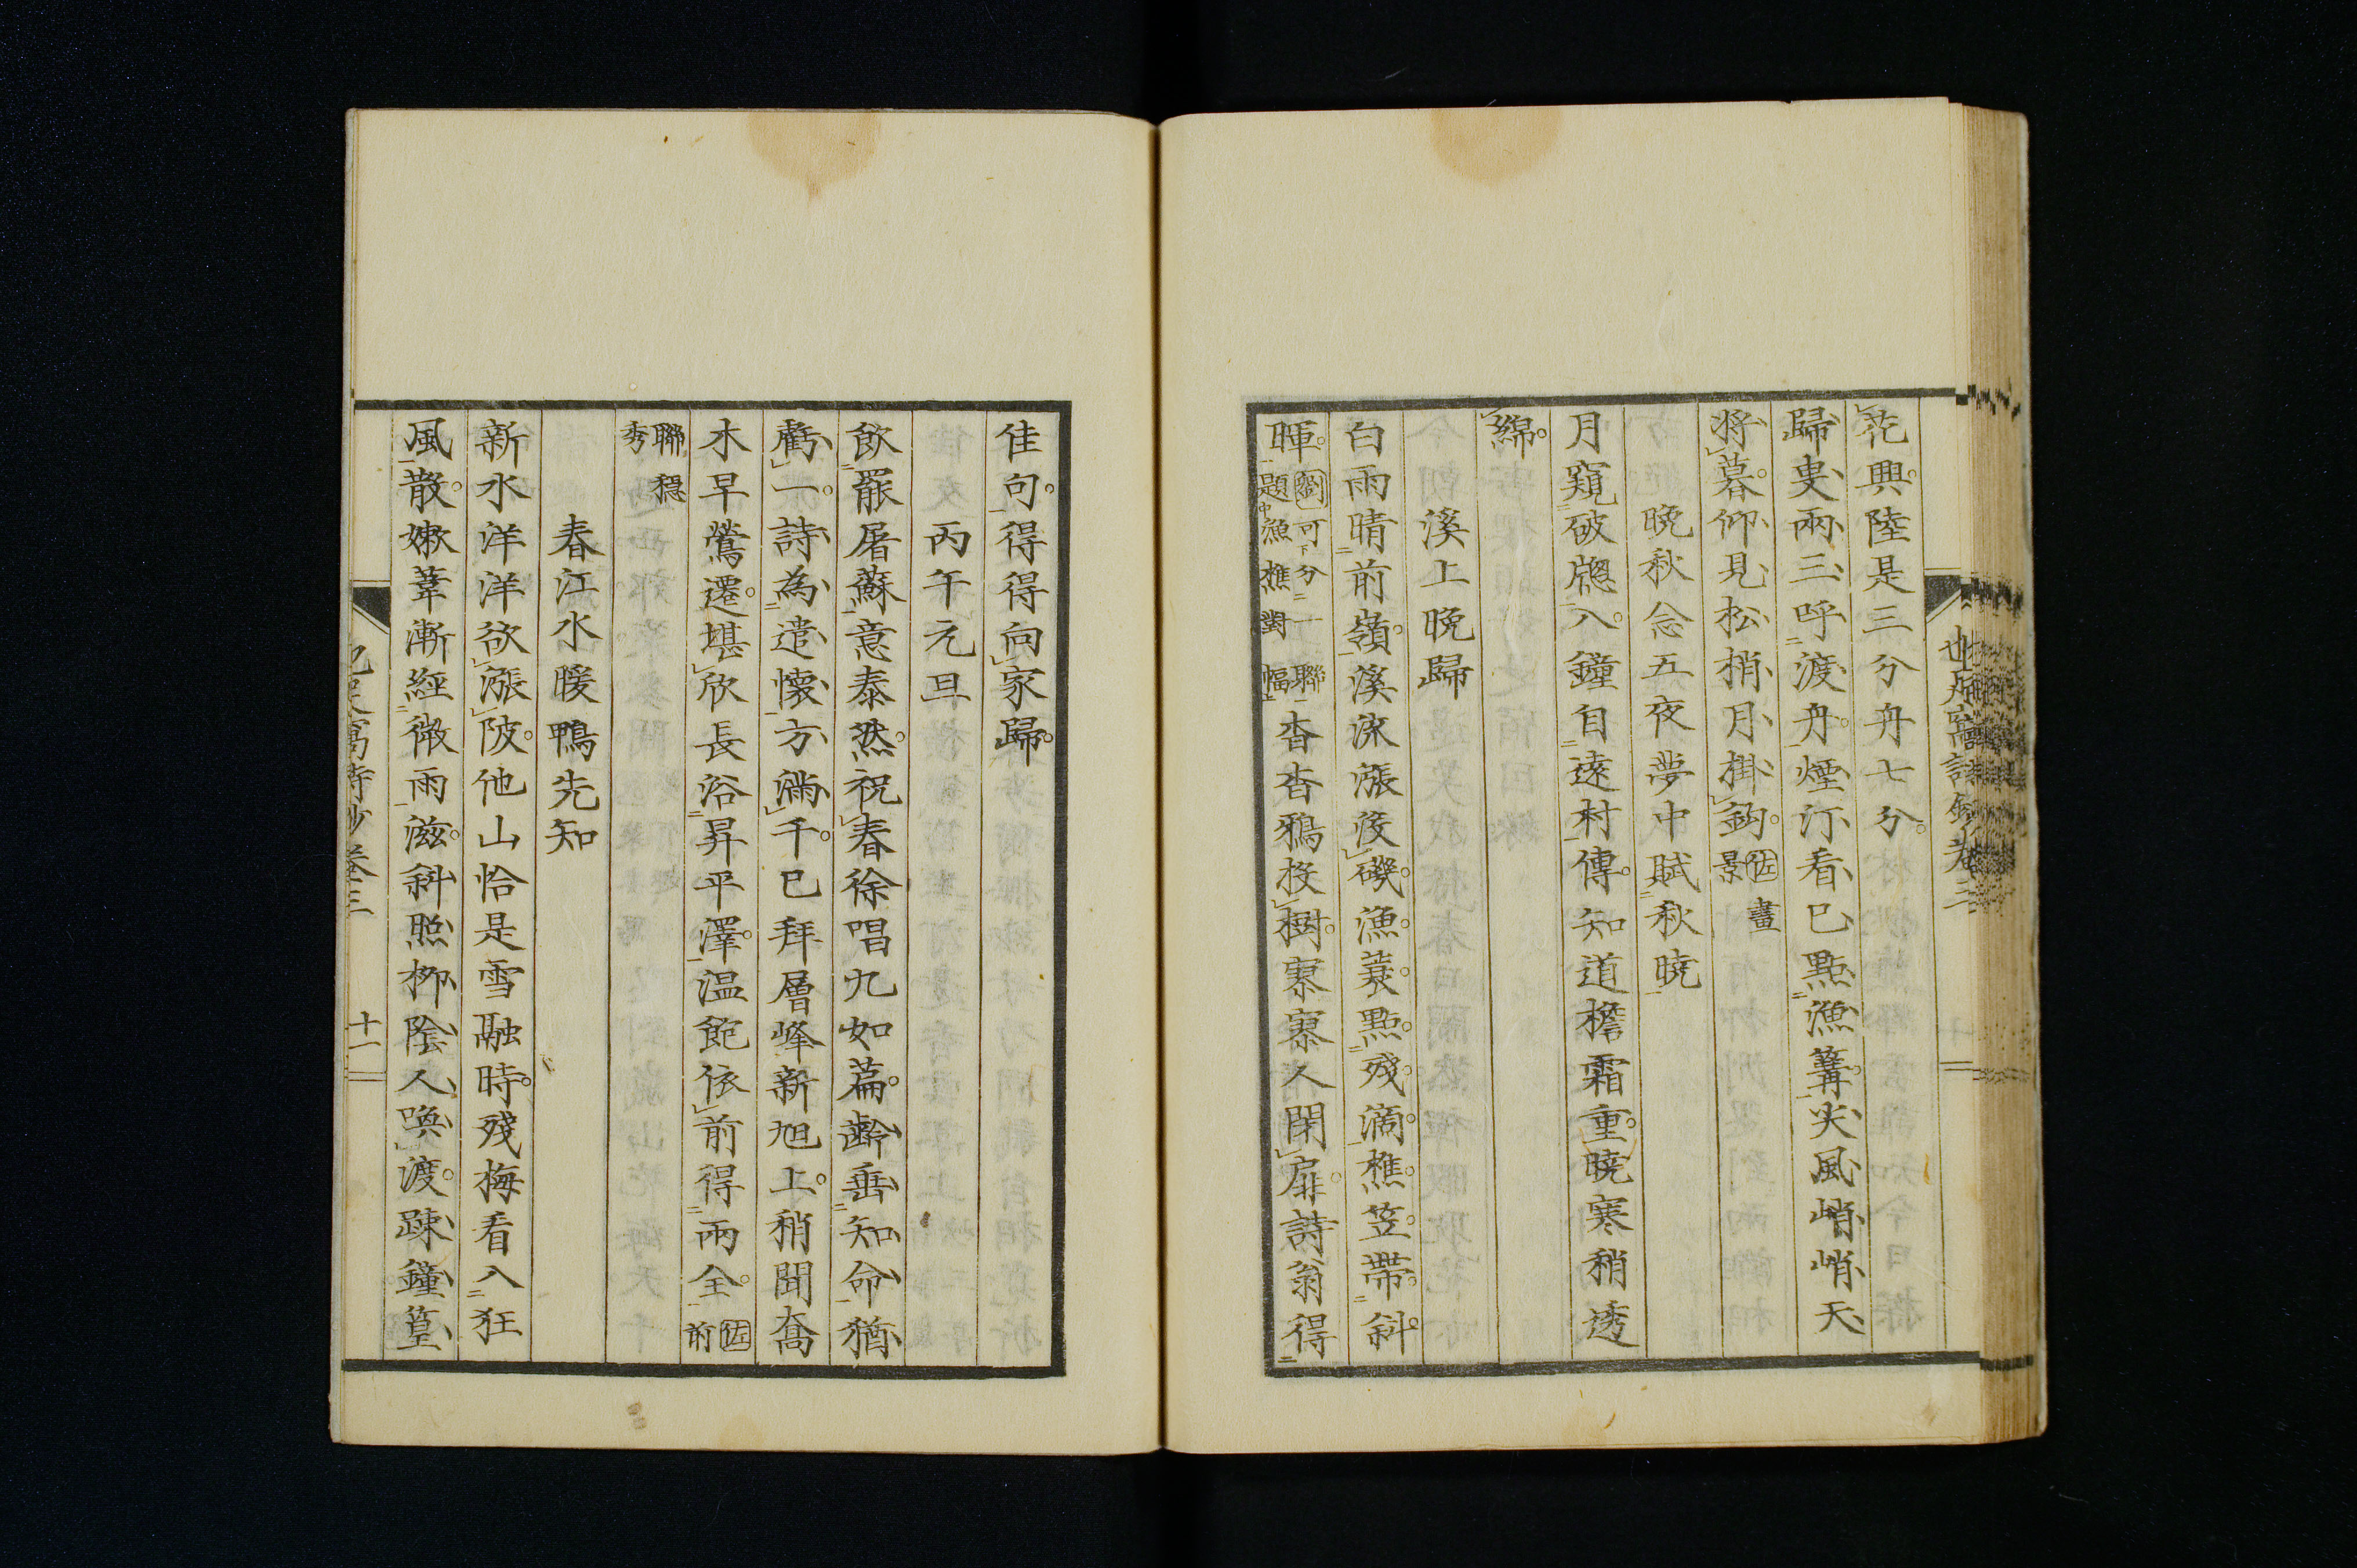 花興陸是三分舟七分
歸叟兩三呼渡舟煙汀看已點漁篝尖風峭峭天
將暮仰見松梢月掛鈎佐畫景
晩秋念五夜夢中賦秋曉
月窺破牕入鐘自遠村傳知道檐霜重曉寒稍透
綿
溪上晩歸
白雨晴前嶺溪流漲後磯漁蓑點殘滴樵笠帶斜
暉劉可分一聯題中漁樵對幅杳杳鴉投樹寥寥人閉扉詩翁得
佳句得得向家歸
丙午元旦
飲罷屠蘇意泰然祝春徐唱九如篇齡垂知命猶
虧一詩為遣懷方滿千已拜層峰新旭上稍聞喬
木早鶯遷堪欣長浴昇平澤温飽依前得兩全佐前
聯穩秀
春江水暖鴨先知
新水洋洋欲漲陂他山恰是雪融時殘梅看入狂
風散嫩葦漸經微雨滋斜照柳陰人喚渡踈鐘篁
寓詩鈔卷三 十一